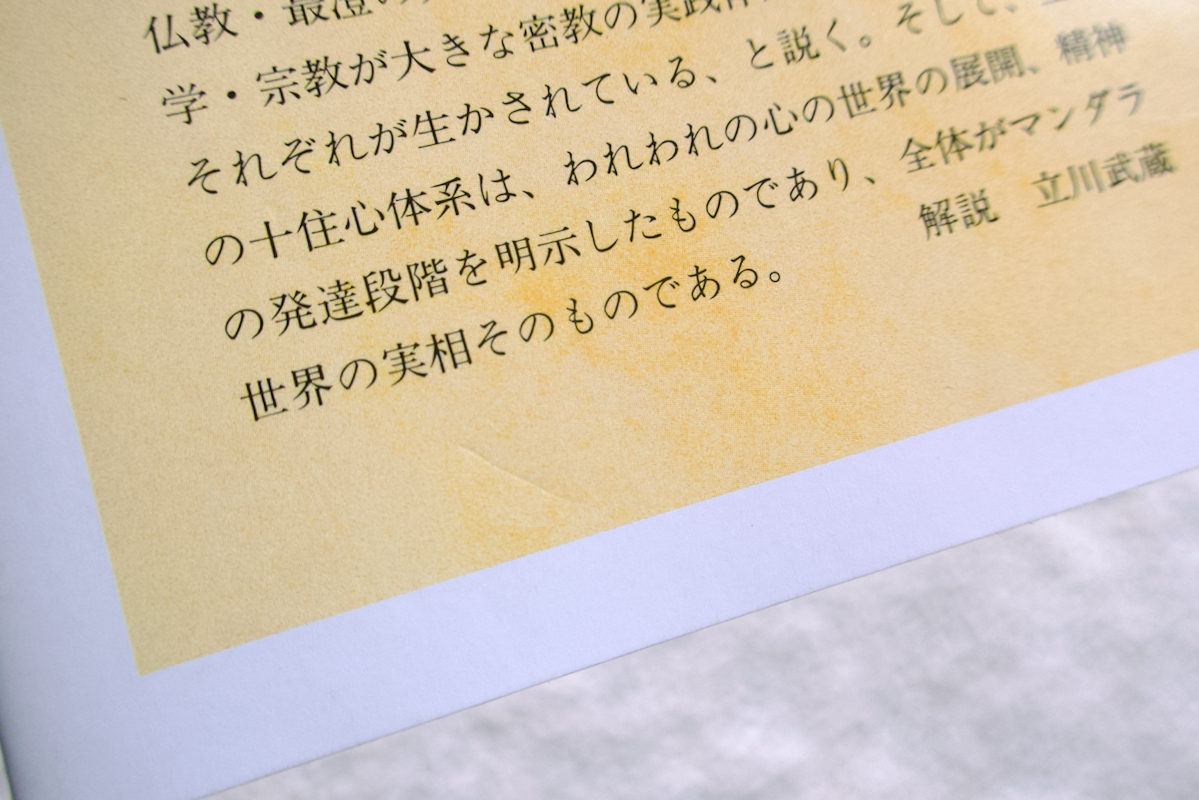 仏教・最澄の
学・宗教が大きな密教の実践体
それぞれが生かされている、と説く。そして、
の十住心体系は、われわれの心の世界の展開、精神
の発達段階を明示したものであり、全体がマンダラ
世界の実相そのものである。
解説　立川武蔵